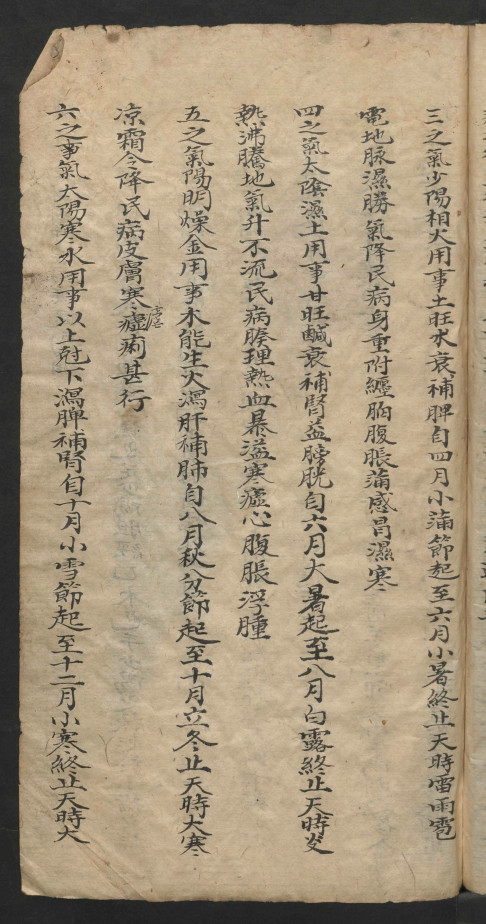 三之氣少陽相火用事土旺水衰補脾自四月小蒲節起至六月小暑終止天時雷雨雹
電地脉濕勝氣降民病身重附纏胸腹脹蒲感冒濕寒
四之氣太陰濕土用事甘旺鹹衰補腎益膀胱自六月大暑起至八月白露終止天時炎
熱沸騰地氣升不流民病腠理熱血暴溢寒瘧心腹脹浮腫
五之氣陽明燥金用事木能生火瀉肝補肺自八月秋分節起至十月立冬止天時大寒
凉霜令降民病皮膚寒瘧痢甚行
六之事氣太陽寒水用事以上尅下瀉脾補腎自十月小雪節起至十二月小寒終止天時大